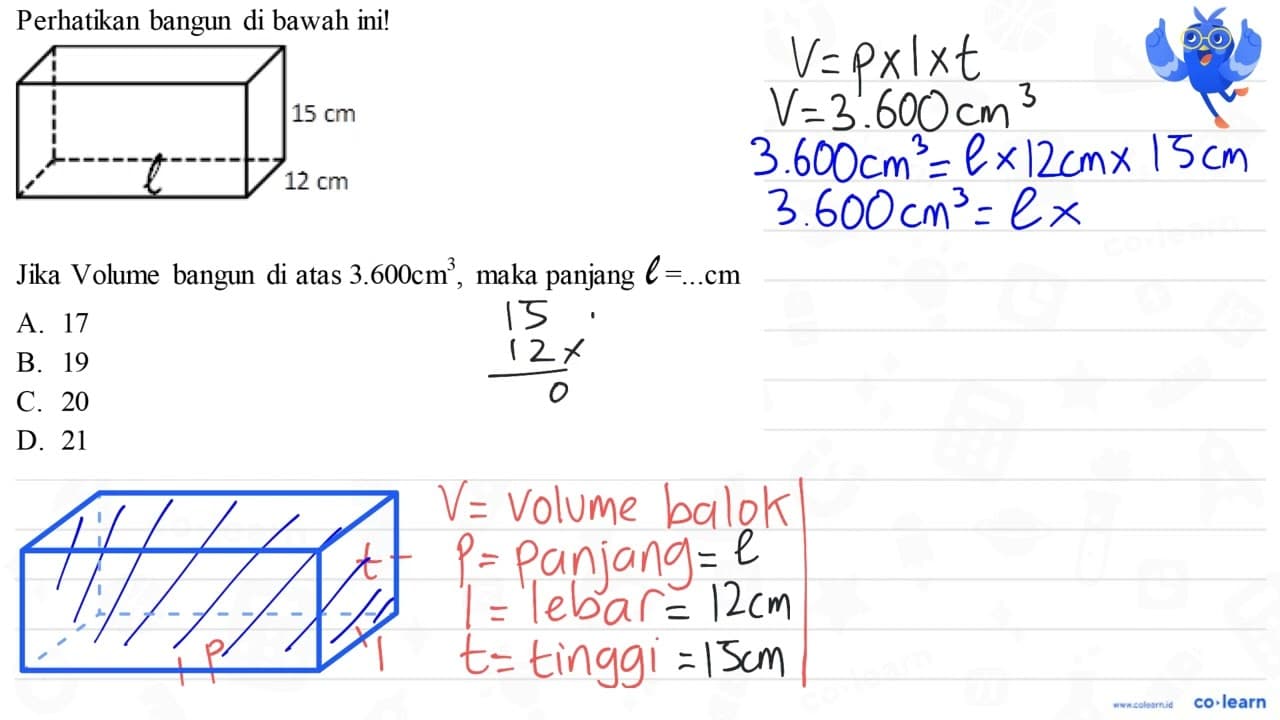 Perhatikan bangun di bawah ini!
15 cm
12 cm
ℓ
Jika Volume bangun di atas 3.600cm³, maka panjang ℓ =...cm
A. 17
B. 19
C. 20
D. 21
15
12 ×
0
V = p × l × t
V = 3.600 cm³
3.600 cm³ = ℓ × 12 cm × 15 cm
3.600 cm³ = ℓ ×
t
p
l
V = Volume balok
p = panjang = ℓ
l = lebar = 12 cm
t = tinggi = 15 cm
www.colearn.id co·learn